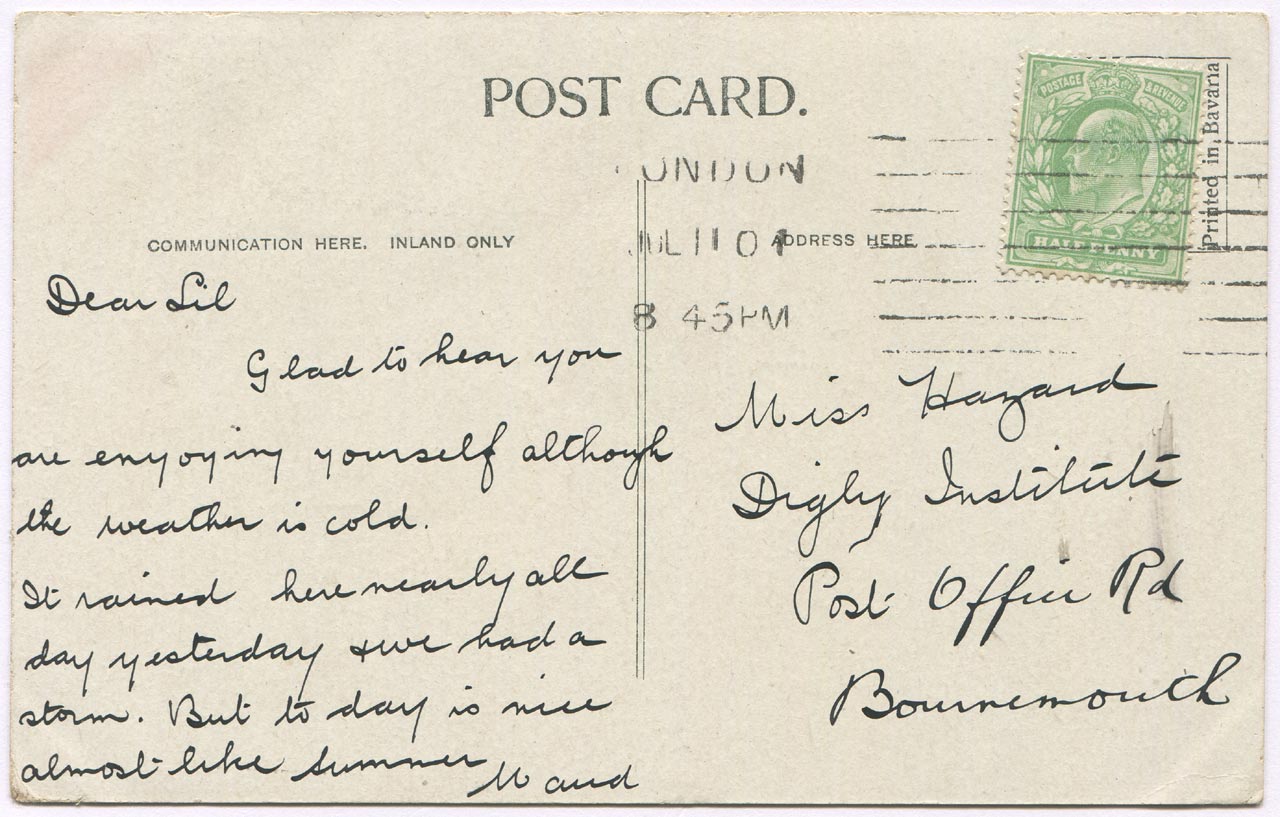 POST CARD.
POSTAGE & REVENUE
HALF PENNY
Printed in Bavaria
LONDON
JUL 11 0
8 45PM
COMMUNICATION HERE. INLAND ONLY
ADDRESS HERE
Dear Lil
Glad to hear you
are enjoying yourself although
the weather is cold.
It rained here nearly all
day yesterday & we had a
storm. But to day is nice
almost like summer
Maud
Miss Hazard
Digby Institute
Post Office Rd
Bournemouth